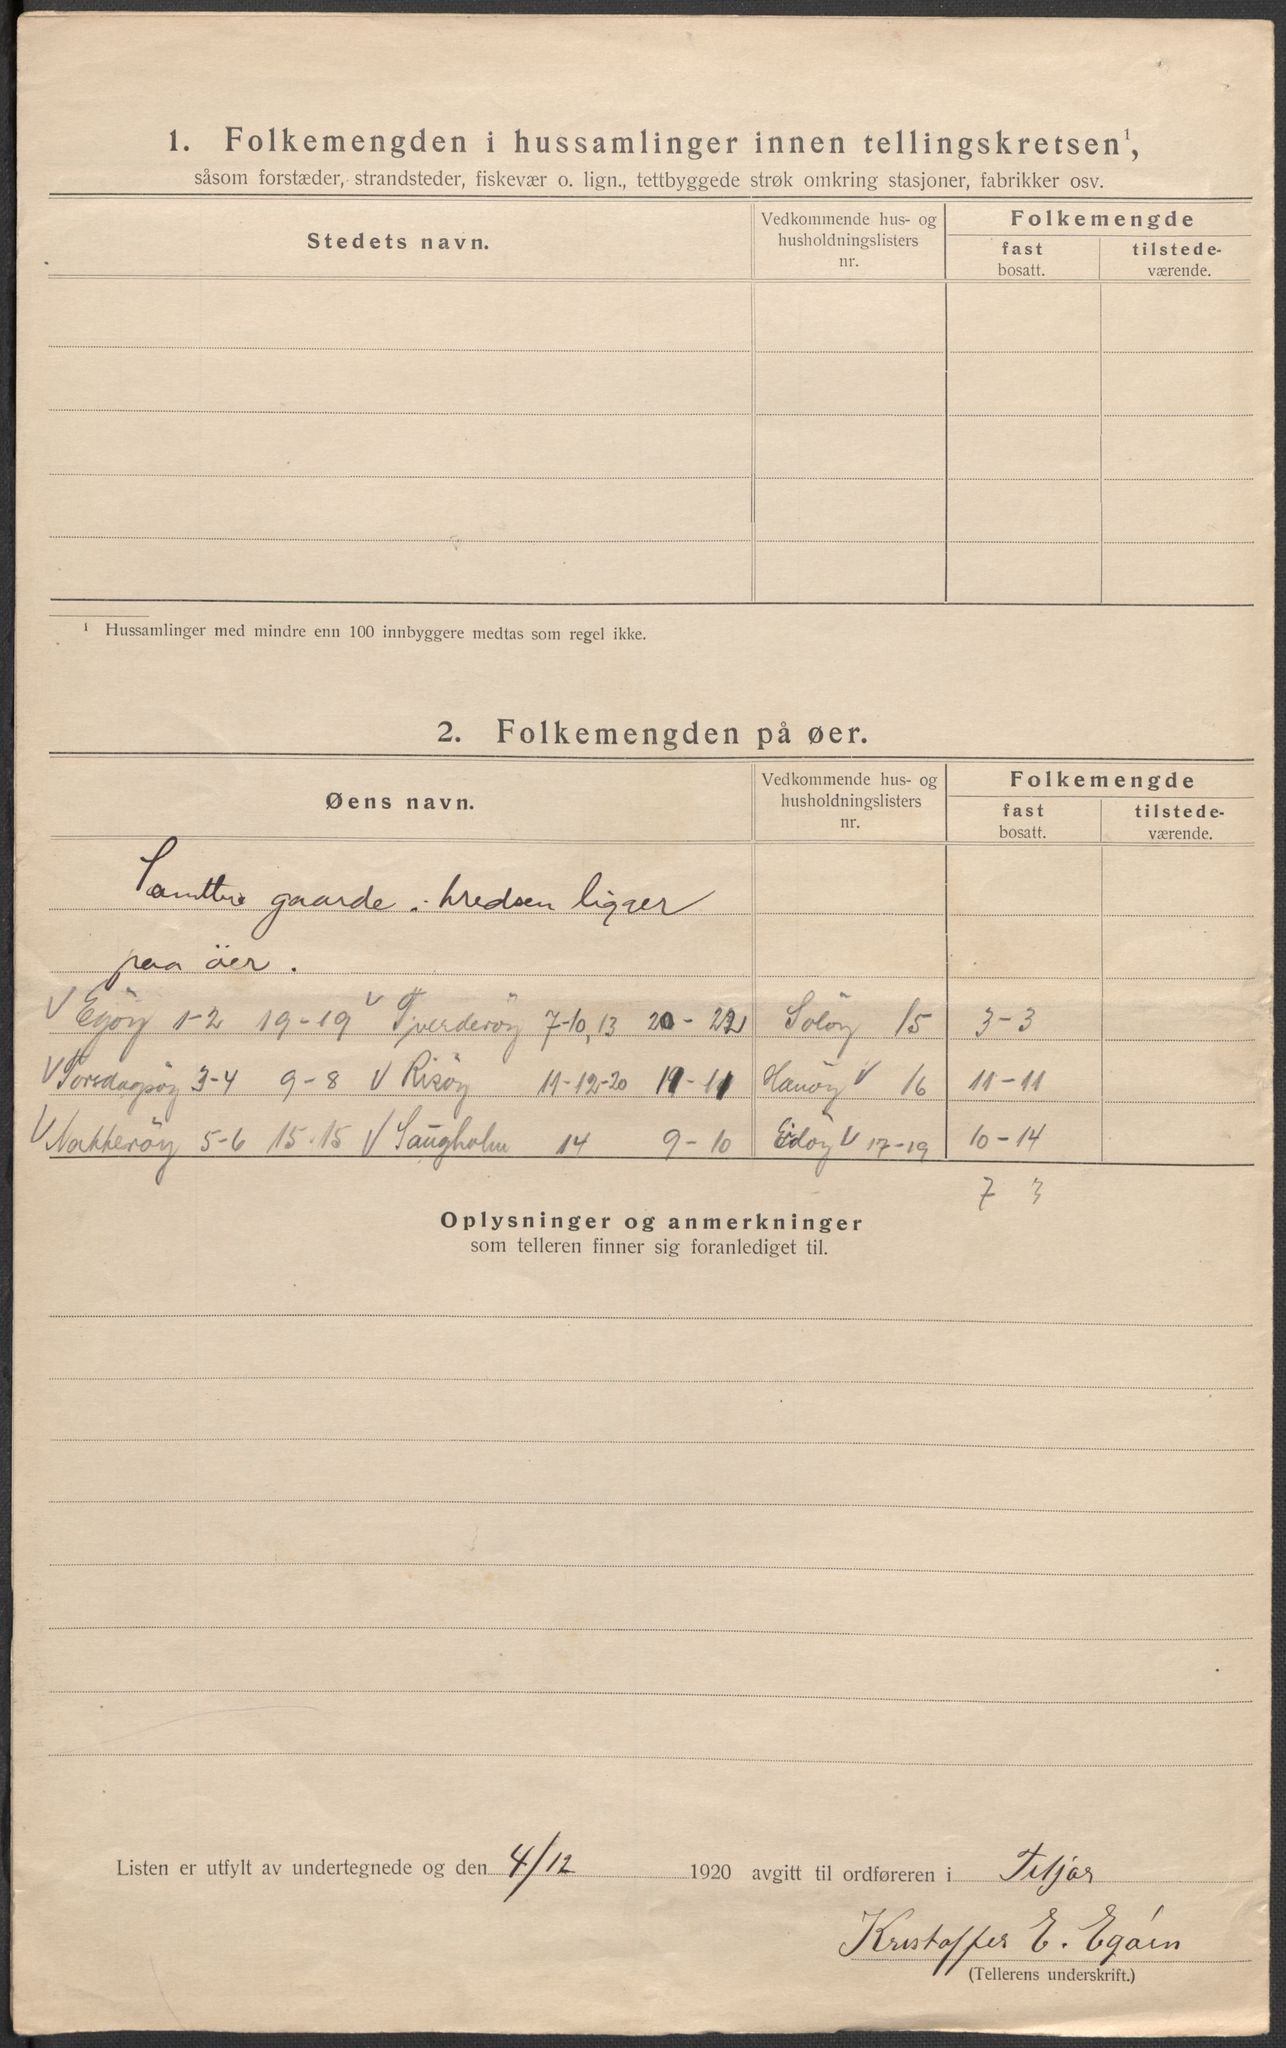 1. Folkemengden i hussamlinger innen tellingskretsen¹,
såsom forstæder, strandsteder, fiskevær o. lign., tettbyggede strøk omkring stasjoner, fabrikker osv.
Stedets navn.
Vedkommende hus- og husholdningslisters nr.
Folkemengde
fast bosatt.
tilstede-værende.
¹ Hussamlinger med mindre enn 100 innbyggere medtas som regel ikke.
2. Folkemengden på øer.
Øens navn.
Vedkommende hus- og husholdningslisters nr.
Folkemengde
fast bosatt.
tilstede-værende.
gaarde i kredsen ligger
paa öer.
V Egöy 1-2 19-19 V Tjverderöy 7-10, 13 20-22 Solöy 15 3-3
V Torsdagsöy 3-4 9-8 V Risöy 11-12-20 11-11 Hanöy V 16 11-11
V Nakkeröy 5-6 15-15 V Saugholm 14 9-10 Eidöy V 17-19 10-14
7 3
Oplysninger og anmerkninger
som telleren finner sig foranlediget til.
Listen er utfylt av undertegnede og den 4/12 1920 avgitt til ordføreren i
Kristoffer E. Egöen
(Tellerens underskrift.)